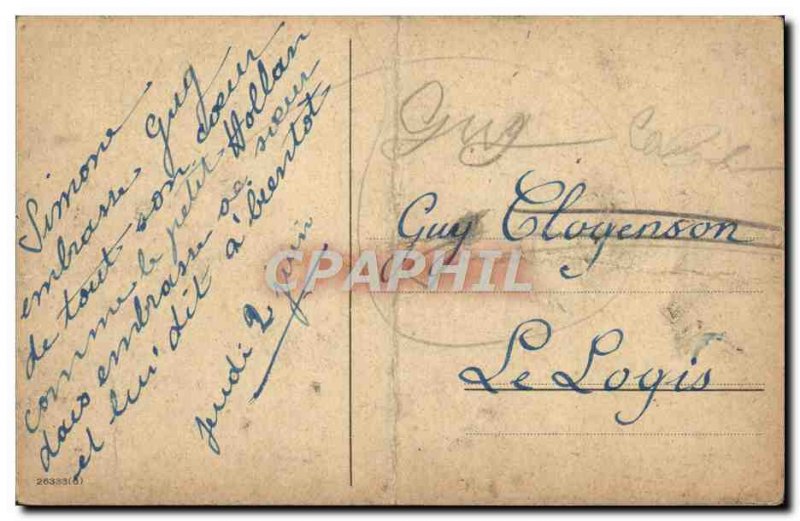 Simone
embrasse Guy
de tout son coeur
comme le petit Hollan
dais embrasse sa soeur
et lui dit à bientôt
jeudi 2 juin
Guy
Guy Clogenson
Le Logis
CPAPHIL
26333(6)